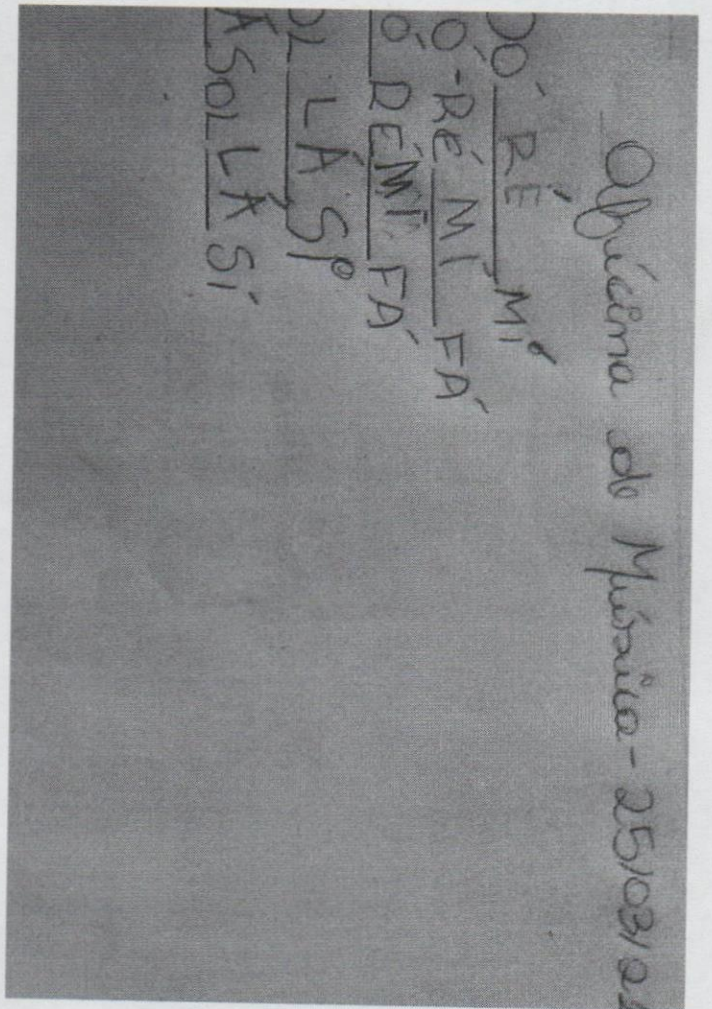 Oficina de Música - 25/03/21
DÓ RÉ MÍ
Ó-RÉ MÍ FÁ
Ó RÉMÍ FÁ
OL LÁ SI
Á SOL LÁ SÍ